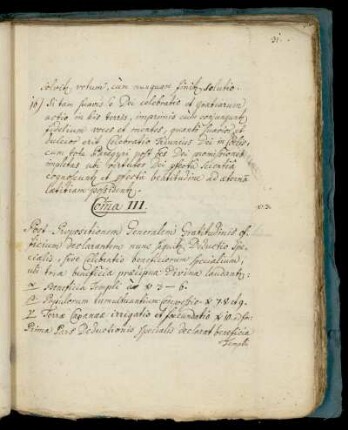 31.
solvit, votum, cum nunquam finit solutio.
10) Si tam suavis è Dei celebratio et gratiarum
actio in his terris, imprimis cum conjungunt
fidelium voces et mentes, quanto suavior et
dulcior erit Celebratio Triunius Dei in coelis,
cum tota Panegyri post hos Dei promissiones
impletas
cognoscunt et perfecta beatitudine ad aeternam
laetitiam
Coma III. v. 3.
Post Propositionem Generalem Gratitudinis of-
ficium declarantem nunc sequitur Deductio Spe-
cialis, sive Celebratio beneficiorum specialium,
ubi tria beneficia praecipua Divina laudantur:
α Beneficia Templi à v 3 – 6.
β Populorum tumultuantium compressio v 7 8 et 9.
γ Terrae Cananaeae irrigatio et foecundatio v 10 ad fin.
Prima Pars Deductionis specialis declarat beneficia
Templi